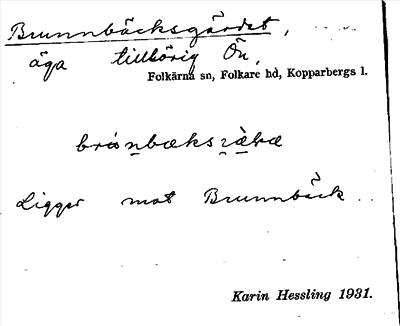 Brunnbäcksgärdet,
äga tillhörig Ön,
Folkärna sn, Folkare hd, Kopparbergs l.
Ligger mot Brunnbäck.
Karin Hessling 1931.